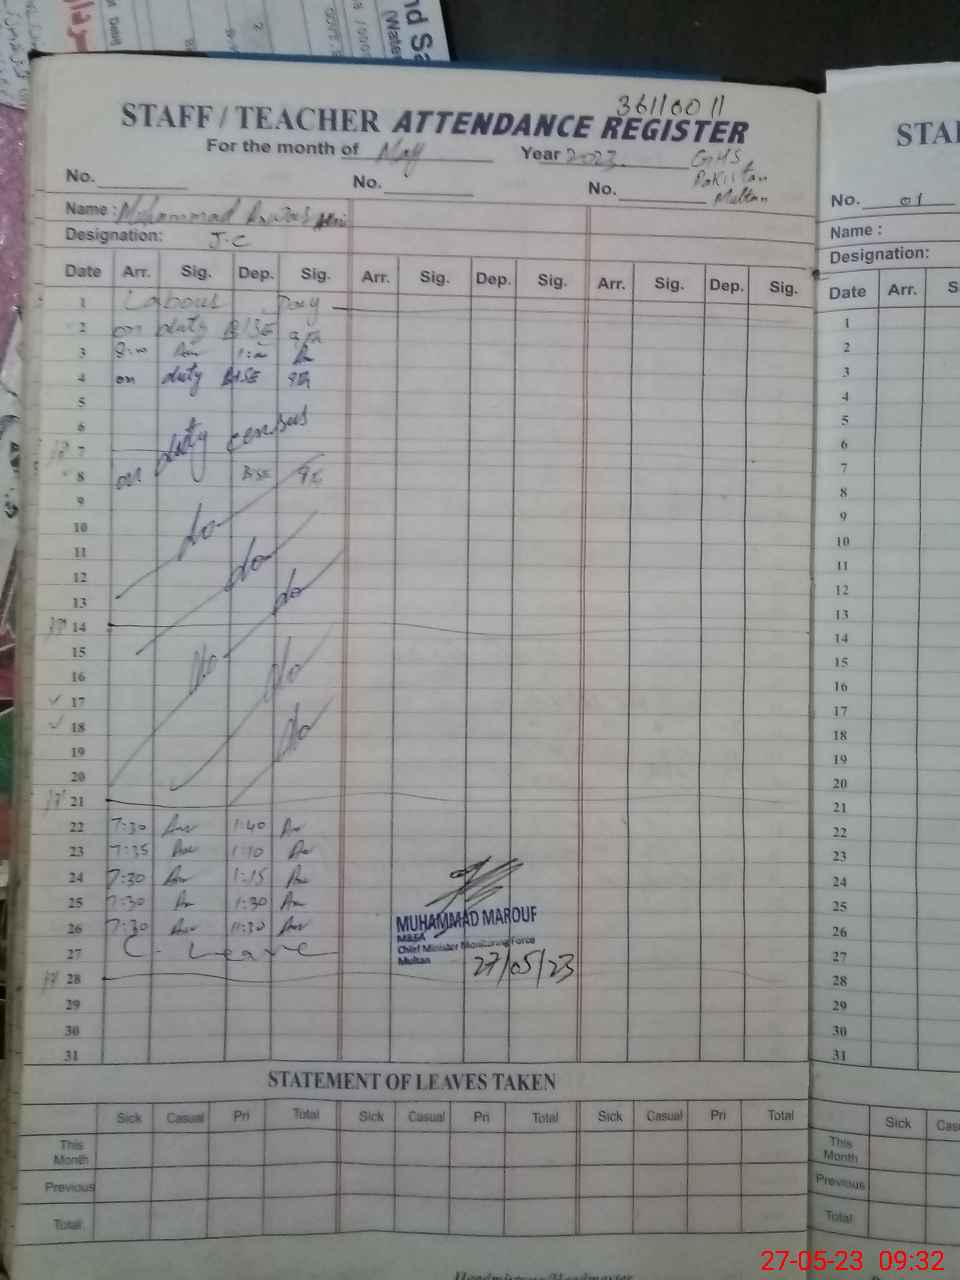 36110011
STAFF / TEACHER ATTENDANCE REGISTER
For the month of May Year 2023. GHS
Pakistan
Multan
No. No. No.
Name : Muhammad
Designation: J.C
Date Arr. Sig. Dep. Sig. Arr. Sig. Dep. Sig. Arr. Sig. Dep. Sig.
1 Labour Day
2 on duty BISE
3 8:00 1:00
4 on duty BISE
5
6
7 on duty census
8 BISE
9
10 do
11
12 do
13 do
14
15
16 do do
17
18 do
19
20
21
22 7:30 1:40
23 7:35 1:10
24 7:30 1:15
25 7:30 1:30
26 7:30 11:30
27 C. Leave
28
29
30
31
MUHAMMAD MAROUF
MEA
Chief Minister Monitoring Force
Multan
27/05/23
STATEMENT OF LEAVES TAKEN
Sick Casual Pri Total Sick Casual Pri Total Sick Casual Pri Total
This Month
Previous
Total
STA
No. 01
Name :
Designation:
Date Arr. S
1
2
3
4
5
6
7
8
9
10
11
12
13
14
15
16
17
18
19
20
21
22
23
24
25
26
27
28
29
30
31
Sick Cas
This Month
Previous
Total
27-05-23 09:32